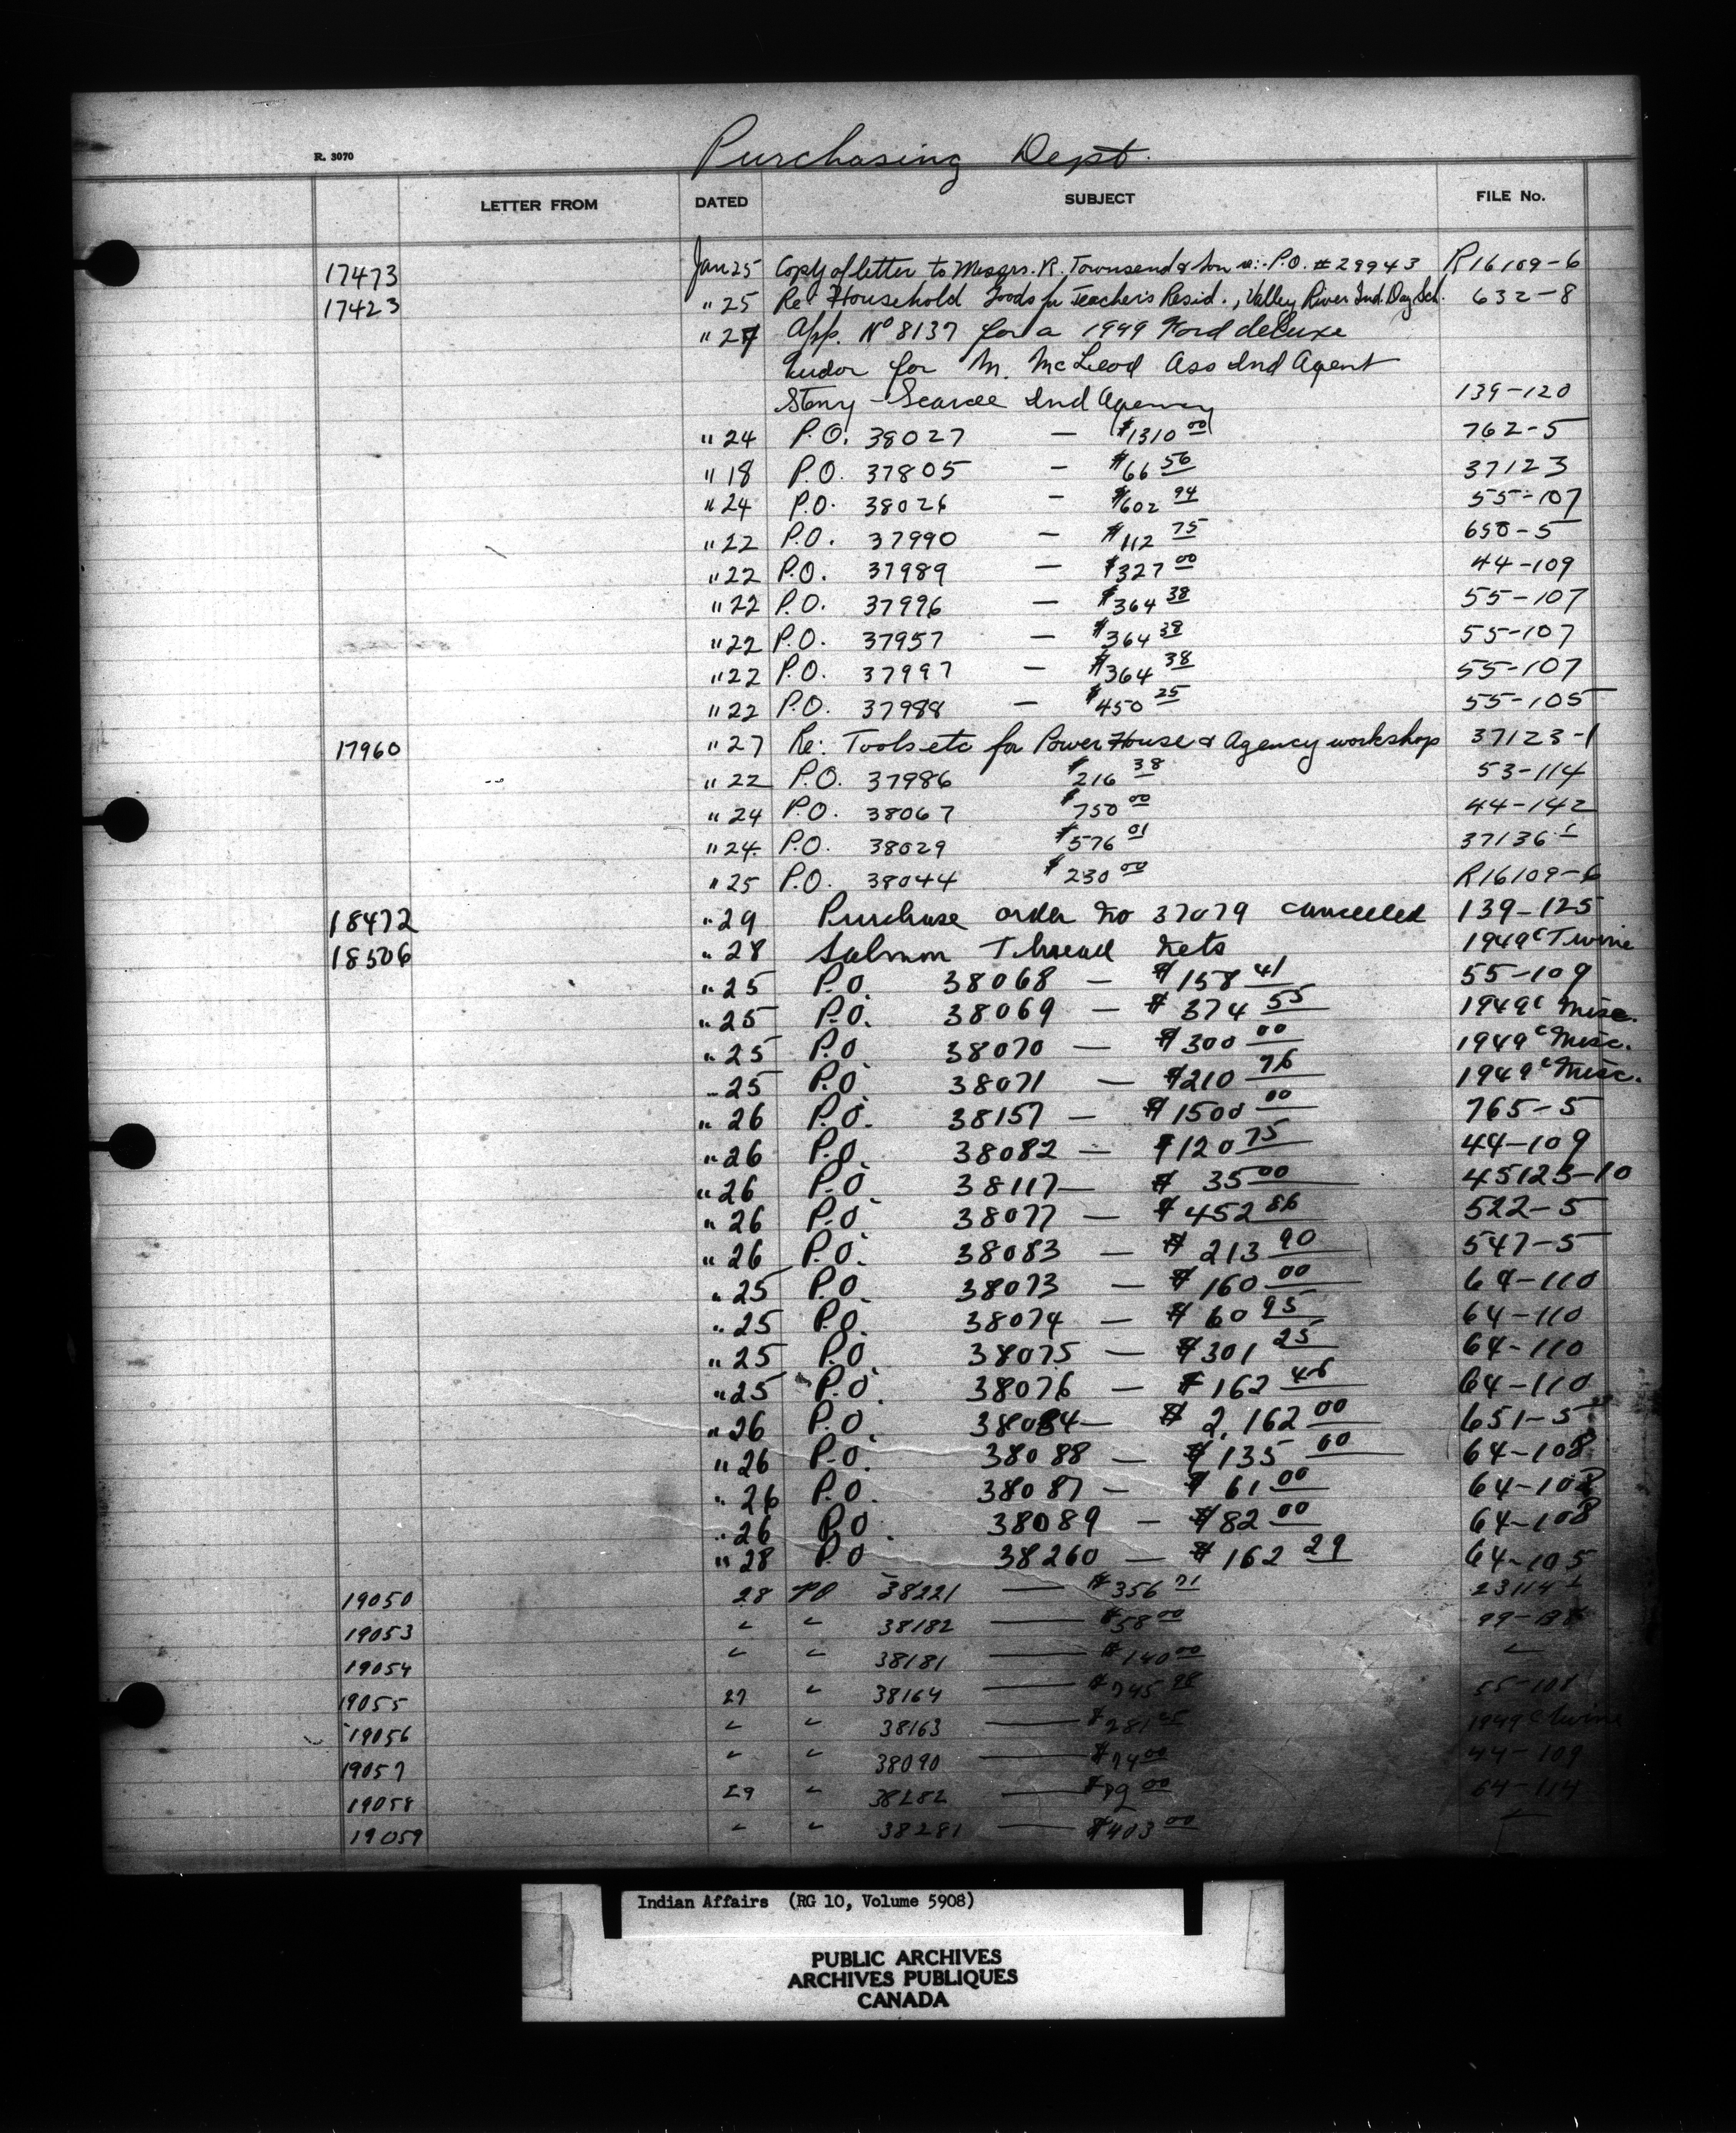 Purchasing Dept.
R. 3070
LETTER FROM DATED SUBJECT FILE No.
17473 Jan 25 Copy of letter to Messrs. R. Townsend & Son re:- P.O. # 29943 R16109-6
17423 " 25 Re: Household Goods for Teacher's Resid., Valley River Ind. Day Sch. 632-8
" 27 App. No 8137 for a 1949 Ford deLuxe
tudor for M. McLeod Ass Ind Agent
Stony - Sarcee Ind Agency 139-120
" 24 P.O. 38027 — $1310 00 762-5
" 18 P.O. 37805 — $66 56 37123
" 24 P.O. 38026 — $602 94 55-107
" 22 P.O. 37990 — $112 75 650-5
" 22 P.O. 37989 — $327 00 44-109
" 22 P.O. 37996 — $364 38 55-107
" 22 P.O. 37957 — $364 38 55-107
" 22 P.O. 37997 — $364 38 55-107
" 22 P.O. 37988 — $450 25 55-105
17960 " 27 Re: Tools etc for Power House & Agency workshop 37123-1
" 22 P.O. 37986 $216 38 53-114
" 24 P.O. 38067 $750 00 44-142
" 24 P.O. 38029 $576 01 37136
" 25 P.O. 38044 $230 00 R16109-6
18472 " 29 Purchase order No 37079 cancelled 139-125
18506 " 28 Salmon Thread Nets 1949 c Twine
" 25 P.O. 38068 — $158 41 55-109
" 25 P.O. 38069 — $374 55 1949 c Misc.
" 25 P.O. 38070 — $300 00 1949 c Misc.
" 25 P.O. 38071 — $210 76 1949 c Misc.
" 26 P.O. 38157 — $1500 00 765-5
" 26 P.O. 38082 — $120 75 44-109
" 26 P.O. 38117 — $35 00 45123-10
" 26 P.O. 38077 — $452 86 522-5
" 26 P.O. 38083 — $213 90 547-5
" 25 P.O. 38073 — $160 00 64-110
" 25 P.O. 38074 — $60 95 64-110
" 25 P.O. 38075 — $301 25 64-110
" 25 P.O. 38076 — $162 46 64-110
" 26 P.O. 38084 — $2,162 00 651-5
" 26 P.O. 38088 — $135 00 64-108
" 26 P.O. 38087 — $61 00 64-108
" 26 P.O. 38089 — $82 00 64-108
" 28 P.O. 38260 — $162 29 64-105
19050 28 PO 38221 — $356 71
19053 " " 38182 — $58 00
19054 " " 38181 — $140 00 "
19055 27 " 38164 — $745 98 55-108
19056 " " 38163 — 1949 c Twine
19057 " " 38090 — $74 00 44-109
19058 29 " 38282 — $79 00 64-114
19059 " " 38281 — $403 00 "
Indian Affairs (RG 10, Volume 5908)
PUBLIC ARCHIVES
ARCHIVES PUBLIQUES
CANADA